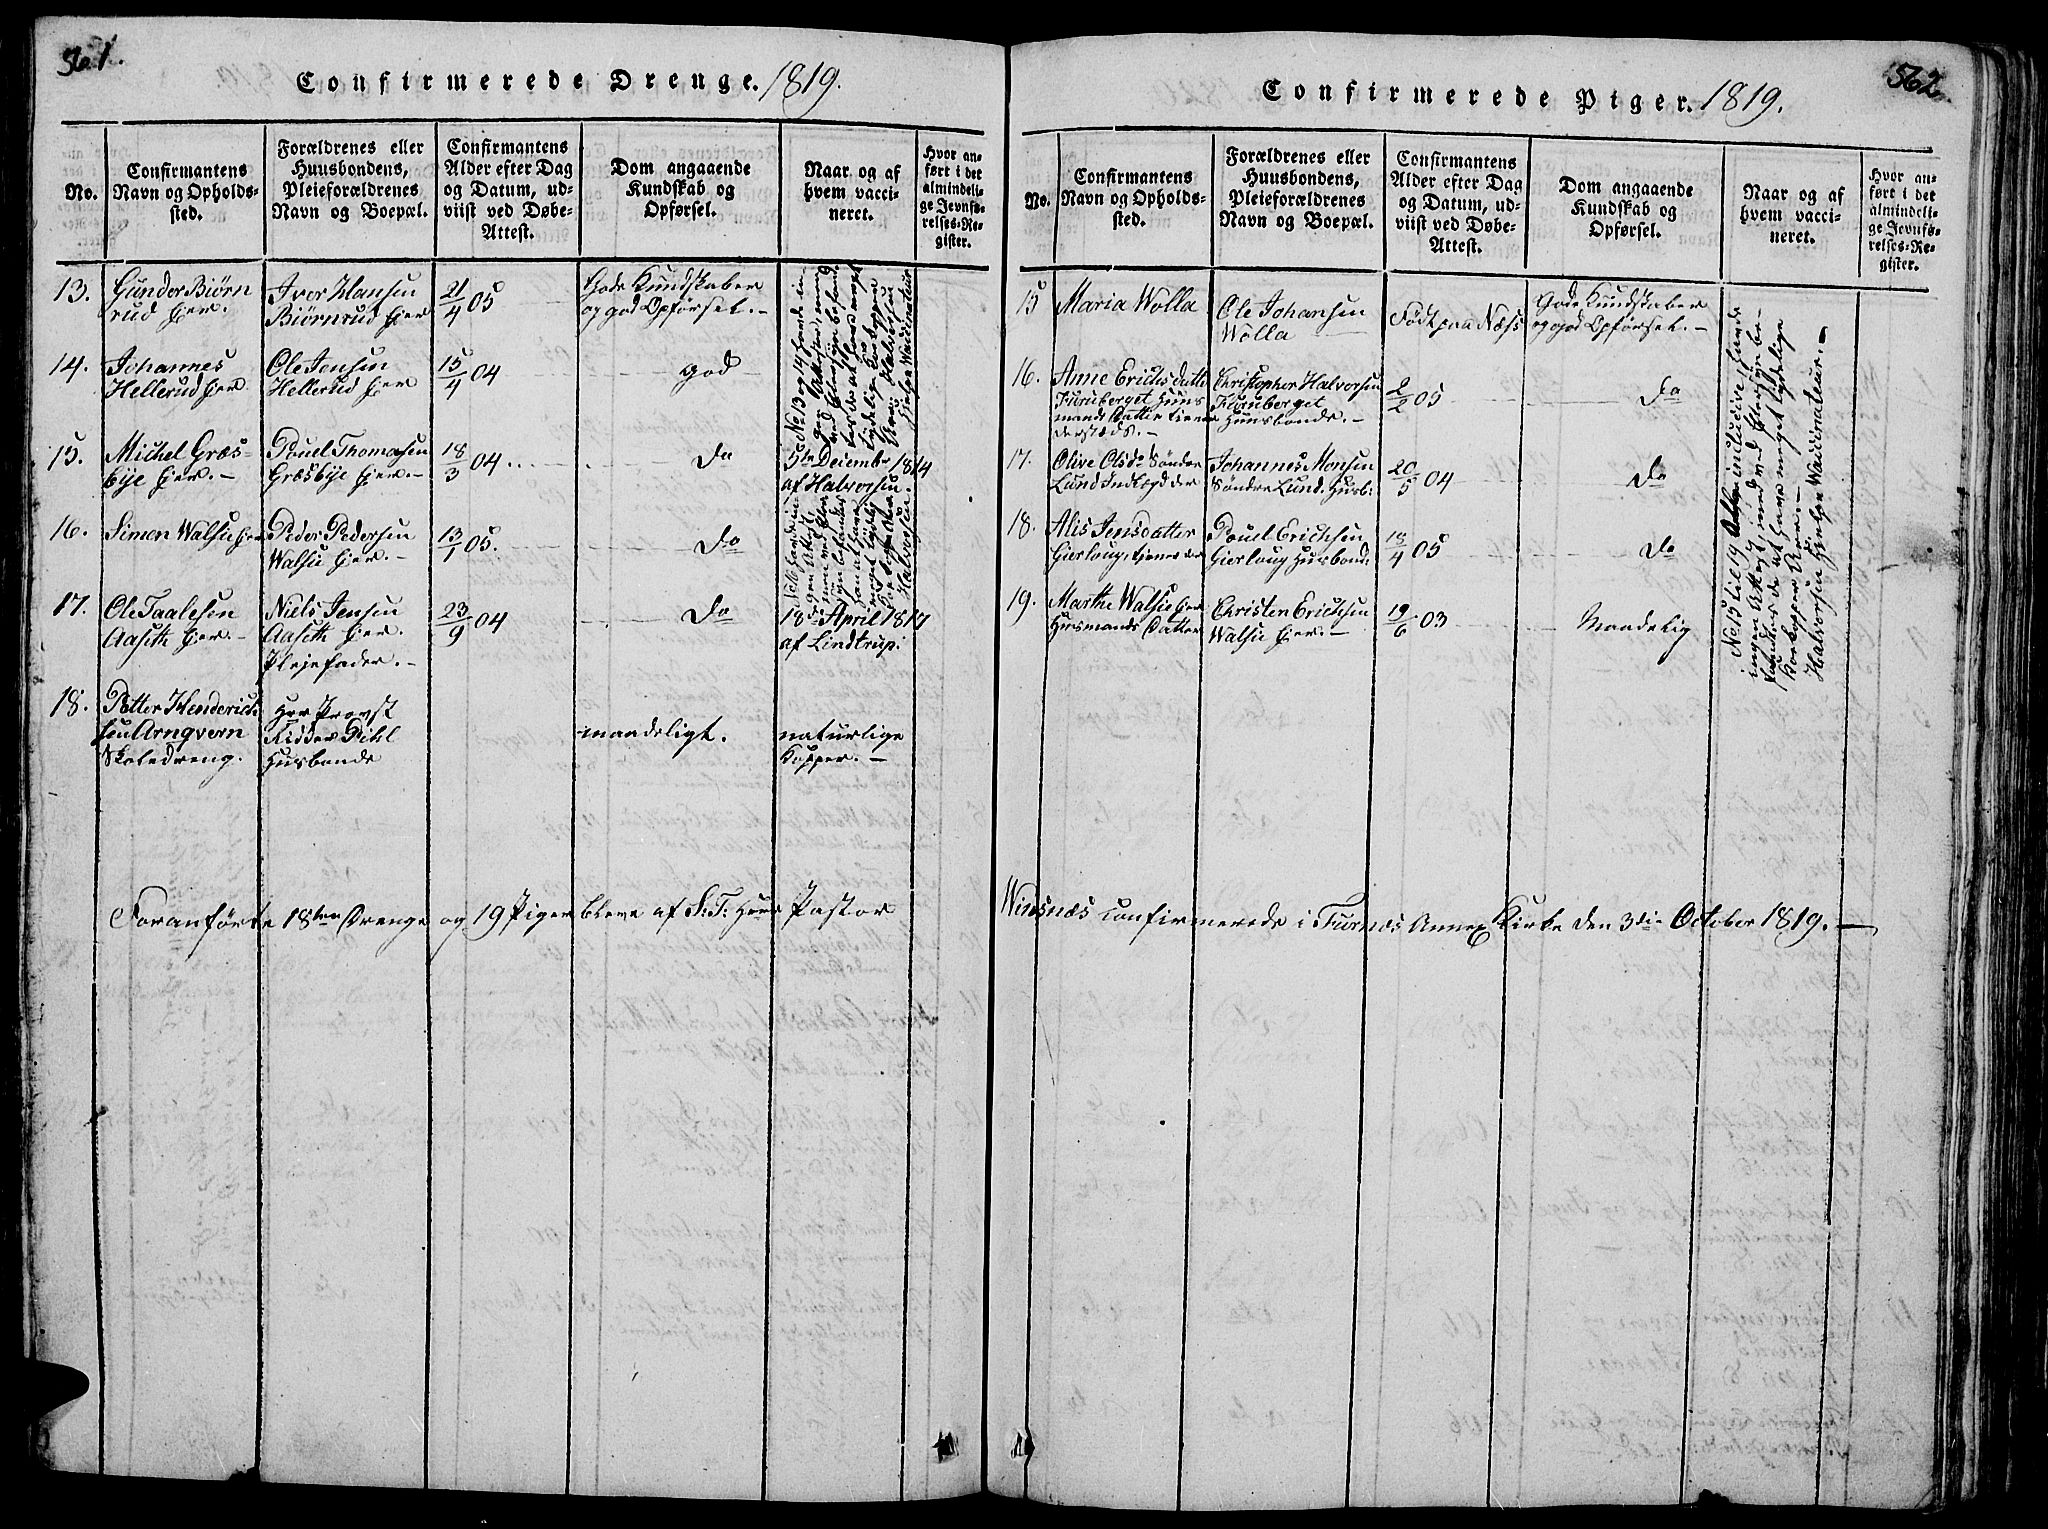 561.
Confirmerede Drenge. 1819.
No.
Confirmantens
Navn og Opholds-
sted.
Forældrenes eller
Huusbondens,
Pleieforældrenes
Navn og Boepæl.
Confirmantens
Alder efter Dag
og Datum, ud-
viist ved Døbe-
Attest.
Dom angaaende
Kundskab og
Opførsel.
Naar og af
hvem vacci-
neret.
Hvor an-
ført i det
almindeli-
ge Jevnfø-
relses-Re-
gister.
13.
Gunder Biørn
rud Eier.
Iver Hansen
Biørnrud Eier
21/4 05
Gode Kundskaber
og god Opførsel. –
14.
Johannes
Hellerud Eier
Ole Jensen
Hellerud Eier
15/4 04
god
15.
Michel Græs-
bye Eier. –
Pouel Thomasen
Græsbye Eier. –
18/3 04
Do
5te Decembr 1814
af Halvorsen.
16.
Simen Walsie Eier
Peder Pedersen
Walsie Eier. –
13/1 05.
Do
17.
Ole Taalesen
Aaseth Eier –
Niels Jensen
Aaseth Eier.
Plejefader. –
23/9 04
Do
18de April 1817
af Lindtrup.
18.
Petter Henderich
sen Arnqvern
Skoledreng.
Herr Provst
Ridder Pihl
Huusbonde
maadeligt.
naturlige
Kopper. –
Foranførte 18ten Drenge og 19 Piger bleve af S: T: Herr Pastor
562
Confirmerede Piger. 1819.
No.
Confirmantens
Navn og Opholds-
sted.
Forældrenes eller
Huusbondens,
Pleieforældrenes
Navn og Boepæl.
Confirmantens
Alder efter Dag
og Datum, ud-
viist ved Døbe-
Attest.
Dom angaaende
Kundskab og
Opførsel.
Naar og af
hvem vacci-
neret.
Hvor an-
ført i det
almindeli-
ge Jevnfø-
relses-Re-
gister.
15
Maria Wolla
Ole Johansen
Wolla
Født paa Næss
Gode Kundskaber
og god Opførsel. –
16.
Anne Erichsdatter
Furuberget Huus
mands Datter tiener
dersteds. –
Christopher Halvorsen
Furuberget
Huusbonde. –
2/2 05
Do
17.
Olive Olsdr Søndre
Lund Indlagd der
Johannes Monsen
Søndre Lund. Husb:
20/5 04
Do
18.
Alis Jensdatter
Gierloug, tiener der
Pouel Erichsen
Gierloug Husbond:
18/4 05
Do
19.
Marthe Walsie Eier
Husmands Datter
Christen Erichsen
Walsie Eier. –
19/6 03
Maadelig
No 15 til 19 inclusive, havde
ingen Attest, men ved Eftersyn be-
fandtes de at have meget tydelige
Koekopper Ar. –
Halvorsen Hielpe Vaccinateur. –
Winsnæs confirmerede i Furnæs Annex Kirke den 3die October 1819. –